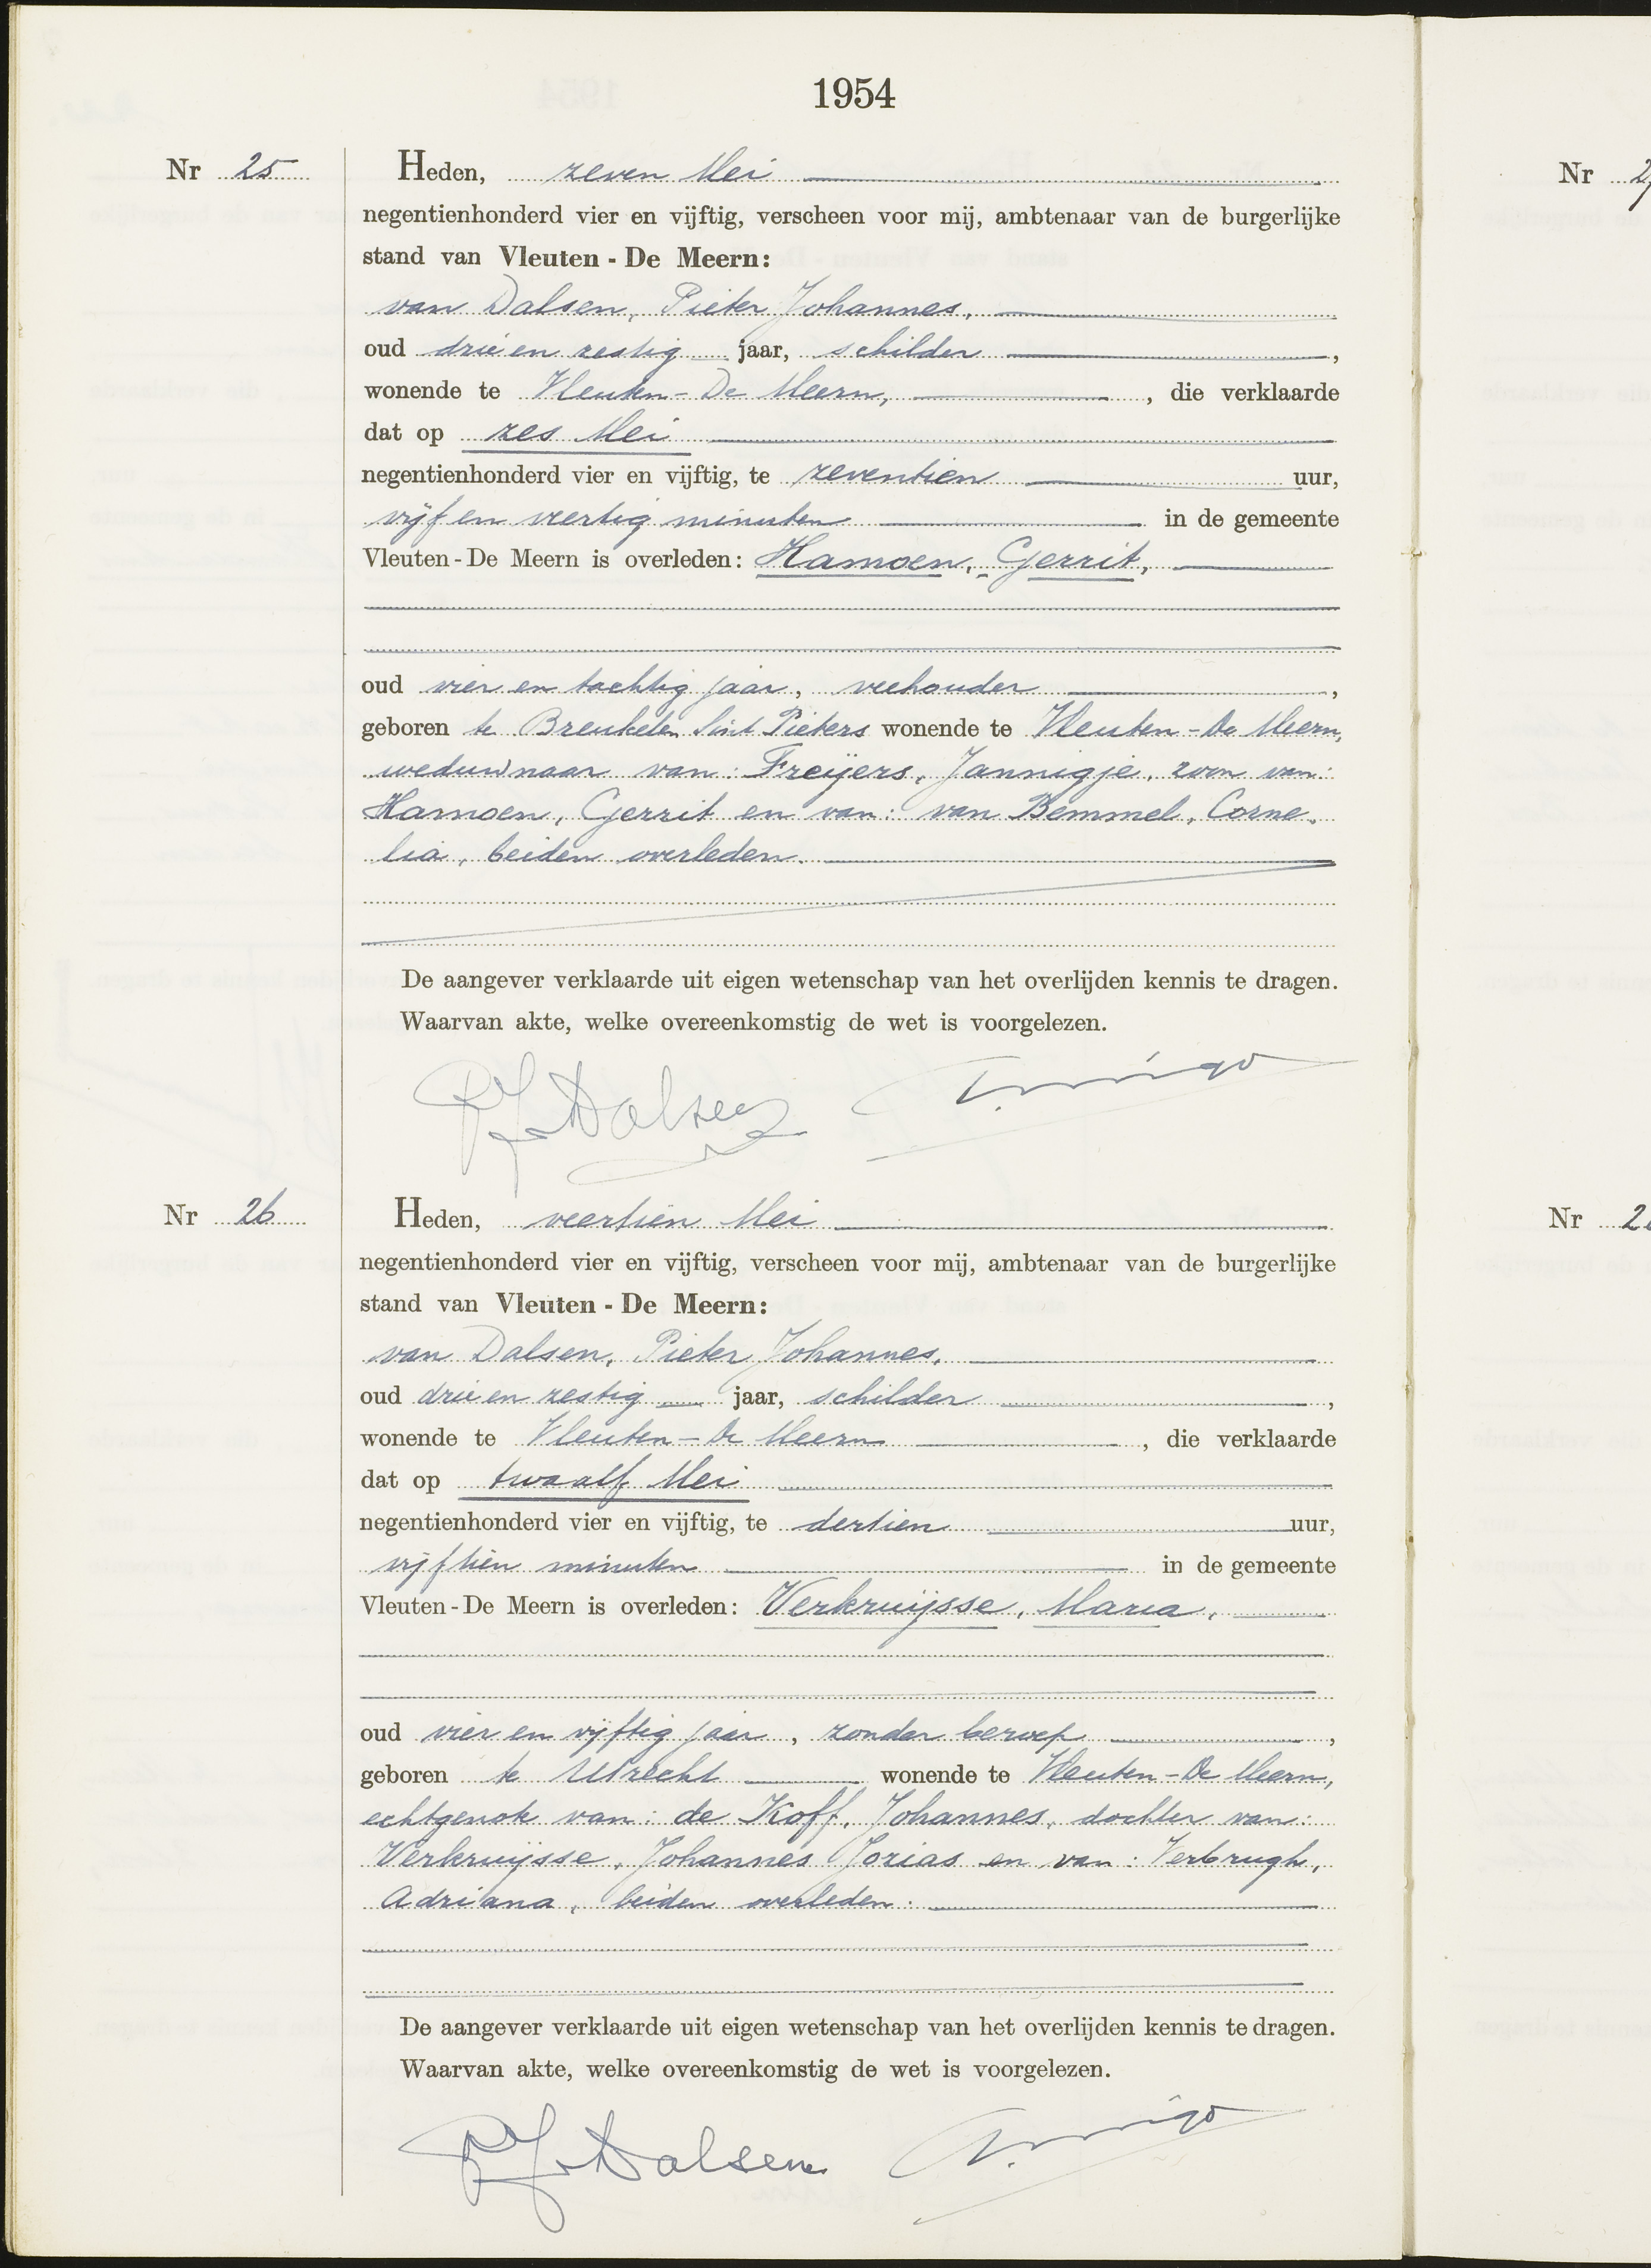 1954
Nr 25
Heden, zeven Mei
negentienhonderd vier en vijftig, verscheen voor mij, ambtenaar van de burgerlijke
stand van Vleuten - De Meern:
van Dalsen, Pieter Johannes,
oud drie en zestig jaar, schilder ,
wonende te Vleuten - De Meern, , die verklaarde
dat op zes Mei
negentienhonderd vier en vijftig, te zeventien uur,
vijf en veertig minuten in de gemeente
Vleuten - De Meern is overleden: Hamoen, Gerrit,
oud vier en tachtig jaar, veehouder ,
geboren te Breukelen Sint Pieters wonende te Vleuten - De Meern,
weduwnaar van: Freijers, Jannigje, zoon van:
Hamoen, Gerrit en van: van Bemmel, Corne-
lia, beiden overleden.
De aangever verklaarde uit eigen wetenschap van het overlijden kennis te dragen.
Waarvan akte, welke overeenkomstig de wet is voorgelezen.
PJ v Dalsen
Nr 26
Heden, veertien Mei
negentienhonderd vier en vijftig, verscheen voor mij, ambtenaar van de burgerlijke
stand van Vleuten - De Meern:
van Dalsen, Pieter Johannes,
oud drie en zestig jaar, schilder ,
wonende te Vleuten - De Meern , die verklaarde
dat op twaalf Mei
negentienhonderd vier en vijftig, te dertien uur,
vijftien minuten in de gemeente
Vleuten - De Meern is overleden: Verkruijsse, Maria,
oud vier en vijftig jaar, zonder beroep ,
geboren te Utrecht wonende te Vleuten - De Meern,
echtgenote van: de Koff, Johannes, dochter van:
Verkruijsse, Johannes Jozias en van: Verbrugh,
Adriana, beiden overleden.
De aangever verklaarde uit eigen wetenschap van het overlijden kennis te dragen.
Waarvan akte, welke overeenkomstig de wet is voorgelezen.
PJ v Dalsen
Nr
Nr